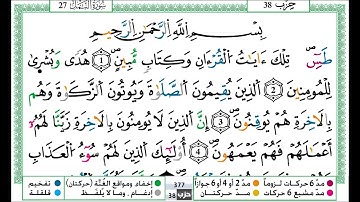 27 سُورَةُ النَّمْلِ حزب 38
بِسْمِ اللَّهِ الرَّحْمَٰنِ الرَّحِيمِ
طسٓ تِلْكَ ءَايَٰتُ الْقُرْءَانِ وَكِتَابٍ مُّبِينٍ (1) هُدًى وَبُشْرَىٰ
لِلْمُؤْمِنِينَ (2) الَّذِينَ يُقِيمُونَ الصَّلَوٰةَ وَيُوتُونَ الزَّكَوٰةَ وَهُم
بِالَاخِرَةِ هُمْ يُوقِنُونَ (3) إِنَّ الَّذِينَ لَا يُومِنُونَ بِالَاخِرَةِ زَيَّنَّا لَهُمُۥٓ
أَعْمَٰلَهُمْ فَهُمْ يَعْمَهُونَ (4) أُوْلَٰٓئِكَ الَّذِينَ لَهُمْ سُوٓءُ الْعَذَابِ
مدّ 6 حركات لزوماً مدّ 2 أو 4 أو 6 جوازاً إخفاء، ومواقع الغُنَّة (حركتان) تفخيم
مدّ مشبع 6 حركات مدّ حركتان إدغام ، وما لا يُلفَظ قلقلة
377
حزب 38